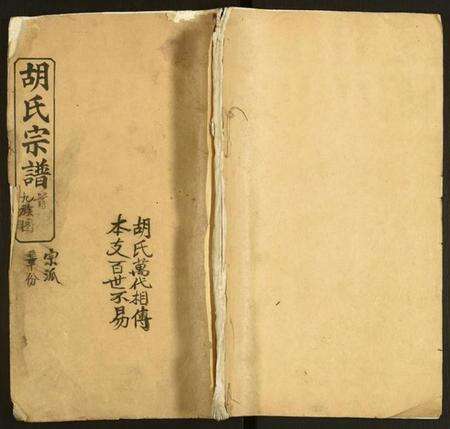 胡氏宗譜
九族圖
宗派
胡氏萬代相傳
本支百世不易